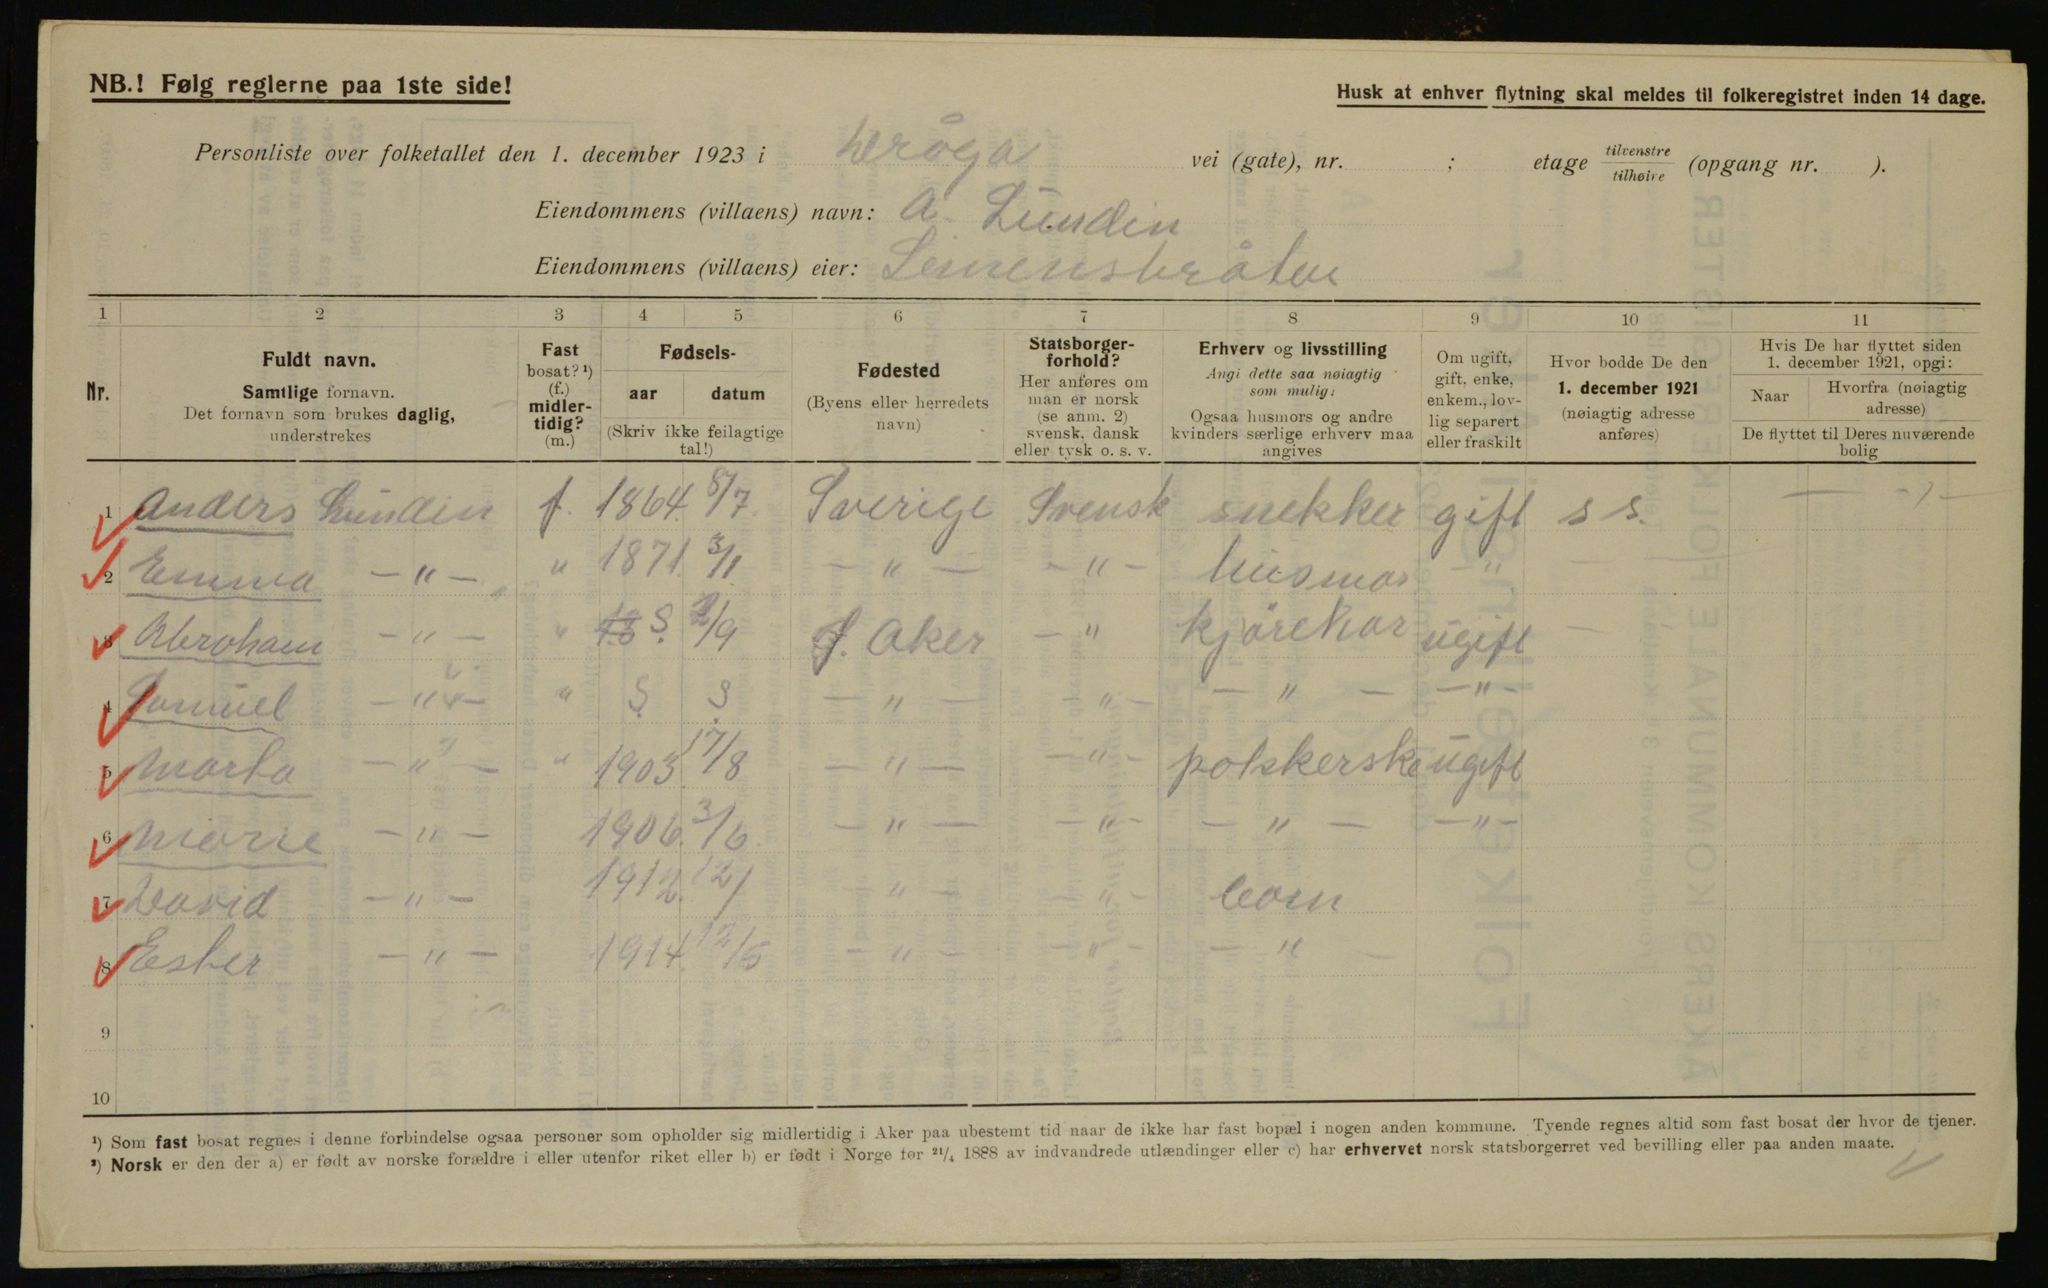 NB.! Følg reglerne paa 1ste side!
Husk at enhver flytning skal meldes til folkeregistret inden 14 dage.
Personliste over folketallet den 1. december 1923 i Drøga vei (gate), nr. ; etage tilvenstre/tilhøire (opgang nr. ).
Eiendommens (villaens) navn: A. Lundin
Eiendommens (villaens) eier: Simensbråten
1 2 3 4 5 6 7 8 9 10 11
Nr.
Fuldt navn.
Samtlige fornavn.
Det fornavn som brukes daglig,
understrekes
Fast
bosat? ¹)
(f.)
midler-
tidig?
(m.)
Fødsels-
aar datum
(Skriv ikke feilagtige
tal!)
Fødested
(Byens eller herredets
navn)
Statsborger-
forhold?
Her anføres om
man er norsk
(se anm. 2)
svensk, dansk
eller tysk o. s. v.
Erhverv og livsstilling
Angi dette saa nøiagtig
som mulig:
Ogsaa husmors og andre
kvinders særlige erhverv maa
angives
Om ugift,
gift, enke,
enkem., lov-
lig separert
eller fraskilt
Hvor bodde De den
1. december 1921
(nøiagtig adresse
anføres)
Hvis De har flyttet siden
1. december 1921, opgi:
Naar Hvorfra (nøiagtig
adresse)
De flyttet til Deres nuværende
bolig
1 Anders Lundin f. 1864. 8/7. Sverige Svensk snekker gift s s. — -"-
2 Emma —"— " 1871. 3/11. —"— —"— husmor "
3 Abraham —"— " S. 2/9 Aker —" kjørekar ugift —
4 Samuel —"— " S. S. —"— —"— —"— —"—
5 Marta —"— " 1903. 17/8 —"— —"— polskerske ugift
6 Marie —"— 1906. 3/6. —"— —"— —"— —"—
7 David —"— 1912. 12/1 —"— —"— barn
8 Ester —"— 1914. 12/5 —"— " —"—
9
10
¹) Som fast bosat regnes i denne forbindelse ogsaa personer som opholder sig midlertidig i Aker paa ubestemt tid naar de ikke har fast bopæl i nogen anden kommune. Tyende regnes altid som fast bosat der hvor de tjener.
²) Norsk er den der a) er født av norske forældre i eller utenfor riket eller b) er født i Norge før 21/4 1888 av indvandrede utlændinger eller c) har erhvervet norsk statsborgerret ved bevilling eller paa anden maate.